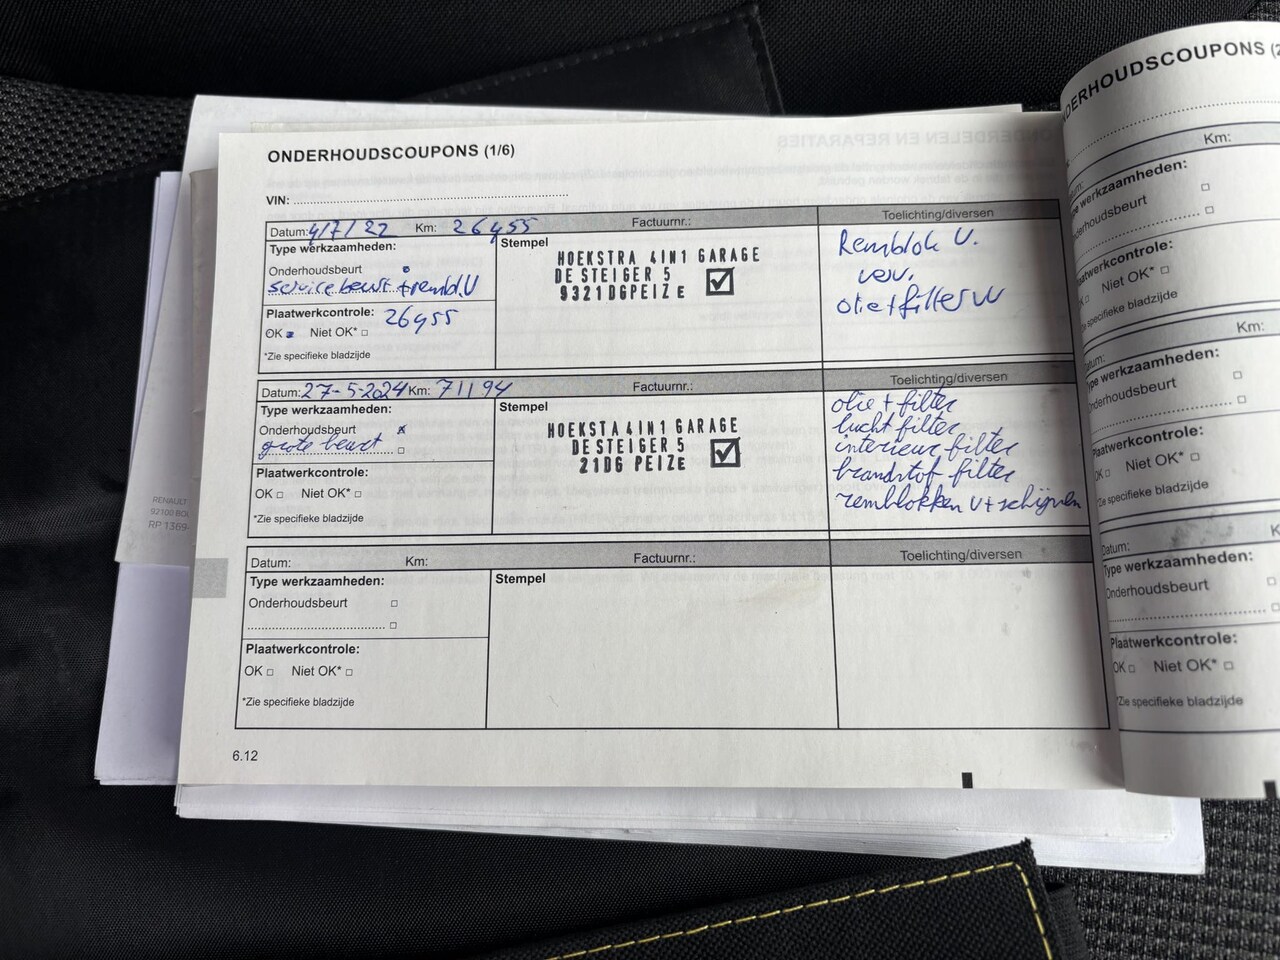 ONDERHOUDSCOUPONS (1/6)
VIN:
Datum: 4/7/22 Km: 26955 Factuurnr.: Toelichting/diversen
Type werkzaamheden:
Onderhoudsbeurt
service beurt + rembl.V
Plaatwerkcontrole: 26955
OK Niet OK*
*Zie specifieke bladzijde
Stempel
HOEKSTRA 4IN1 GARAGE
DE STEIGER 5
9321DGPEIZE
Remblok V.
verv.
olie + filter VV
Datum: 27-5-2024 Km: 71194 Factuurnr.: Toelichting/diversen
Type werkzaamheden:
Onderhoudsbeurt x
grote beurt
Plaatwerkcontrole:
OK Niet OK*
*Zie specifieke bladzijde
Stempel
HOEKSTA 4IN1 GARAGE
DE STEIGER 5
21DG PEIZE
olie + filter
lucht filter
interieur filter
brandstof filter
remblokken V + schijven
Datum: Km: Factuurnr.: Toelichting/diversen
Type werkzaamheden:
Onderhoudsbeurt
Plaatwerkcontrole:
OK Niet OK*
*Zie specifieke bladzijde
Stempel
6.12
RENAULT
RP 1369
DERHOUDSCOUPONS (2
Km:
werkzaamheden:
nderhoudsbeurt
aatwerkcontrole:
Niet OK*
Zie specifieke bladzijde
Km:
ype werkzaamheden:
nderhoudsbeurt
laatwerkcontrole:
OK Niet OK*
Zie specifieke bladzijde
Datum:
Type werkzaamheden:
Onderhoudsbeurt
Plaatwerkcontrole:
OK Niet OK*
*Zie specifieke bladzijde